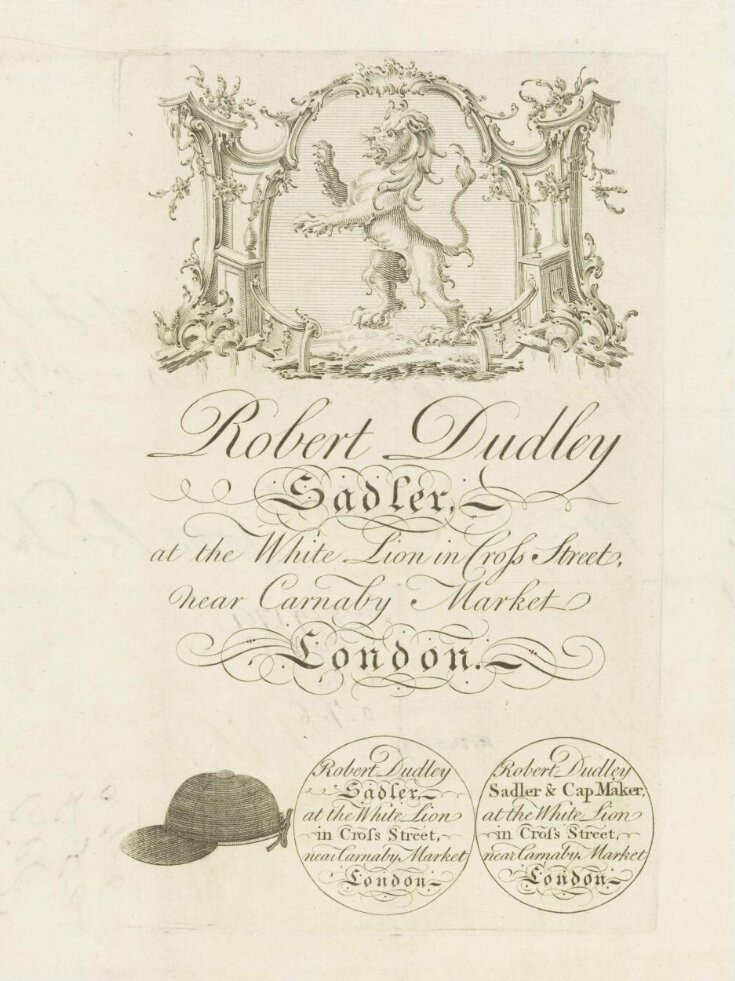 Robert Dudley
Sadler,
at the White Lion in Croſs Street,
near Carnaby Market
London.
Robert Dudley
Sadler
at the White Lion
in Croſs Street,
near Carnaby Market
London
Robert Dudley
Sadler & Cap Maker,
at the White Lion
in Croſs Street,
near Carnaby Market
London